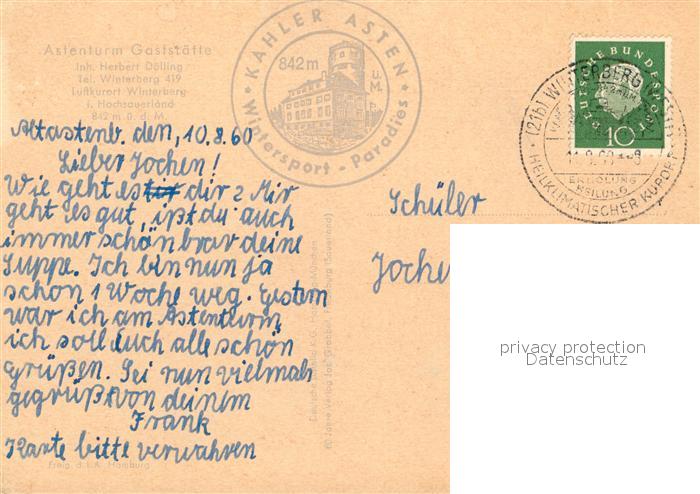 Astenturm Gaststätte
Inh. Herbert Dölling
Tel. Winterberg 419
Luftkurort Winterberg
i. Hochsauerland
842 m ü. d. M.
KAHLER ASTEN
842 m
ü.M.
Wintersport - Paradies
DEUTSCHE BUNDESPOST
10
(21b) WINTERBERG
ERHOLUNG
HEILUNG
HEILKLIMATISCHER KURORT
Altastenb. den, 10.8.60
Lieber Jochen!
Wie geht es dir? Mir
geht es gut, ißt du auch
immer schön brav deine
Suppe. Ich bin nun ja
schon 1 Woche weg. Gestern
war ich am Astenturm,
ich soll Euch alle schön
grüßen. Sei nun vielmals
gegrüßt von deinem
Frank
Karte bitte verwahren
Schüler
Freig. d. L.A. Hamburg
privacy protection
Datenschutz